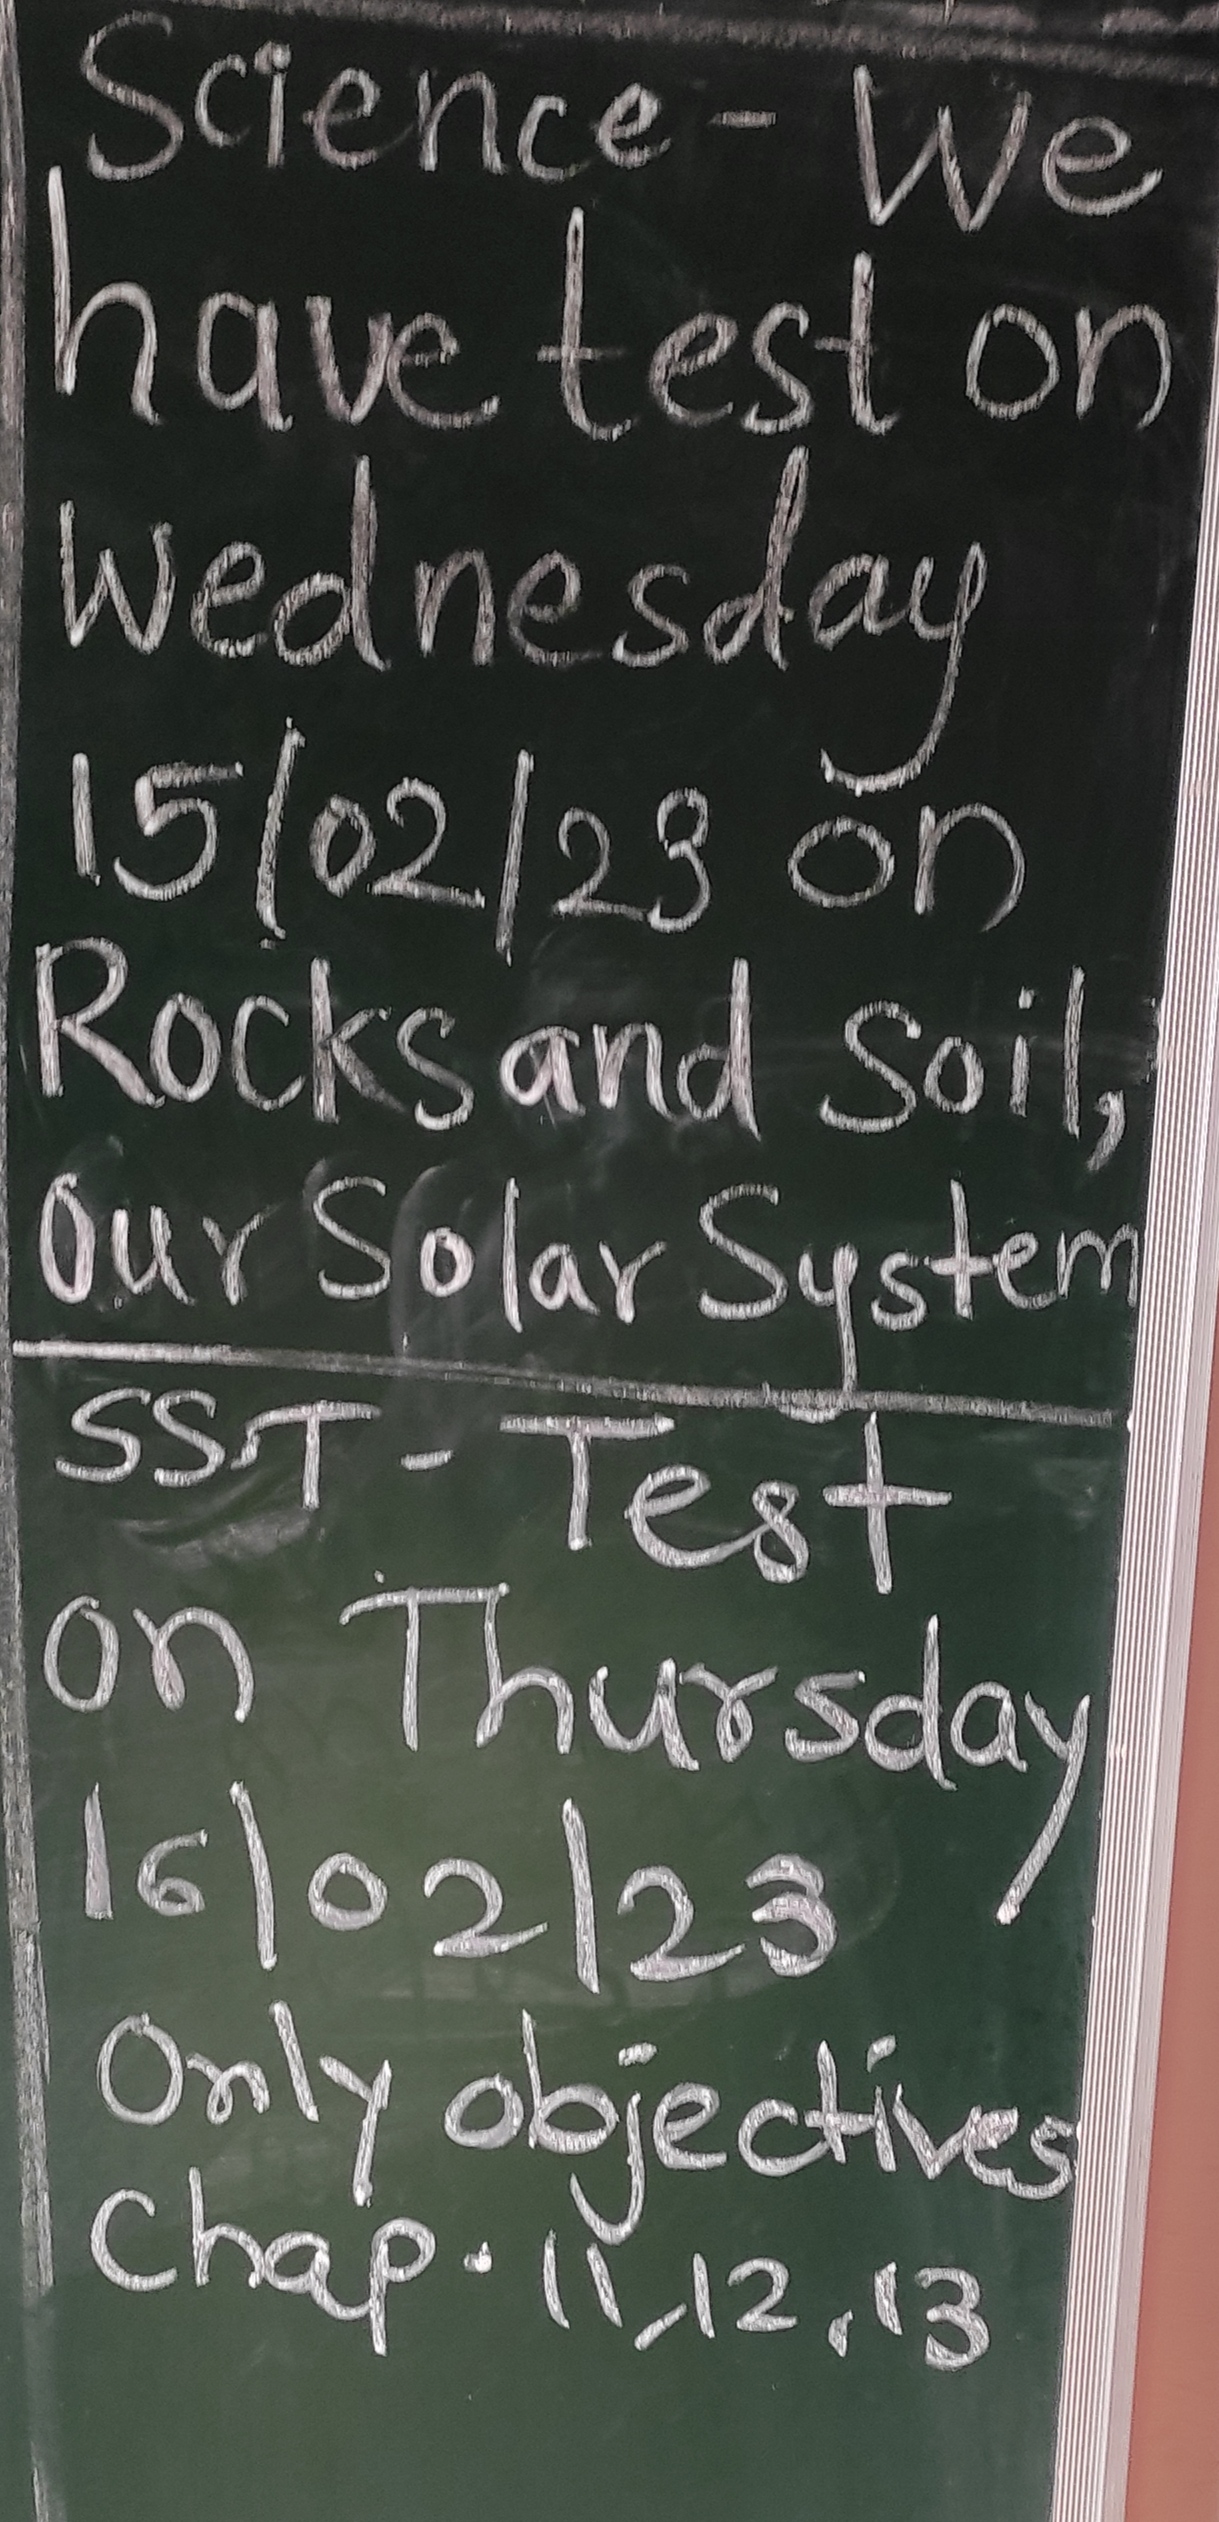 Science - We
have test on
Wednesday
15/02/23 on
Rocks and Soil,
Our Solar System
SST - Test
on Thursday
16/02/23
Only objectives
Chap. 11, 12, 13